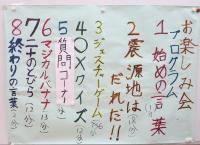 お楽しみ会
プログラム
1 始めの言葉
2 震源地は
だれだ!!
3 ジェスチャーゲーム
4 〇×クイズ
5 質問コーナー
6 マジカルバナナ
7 二十のとびら
8 終わりの言葉